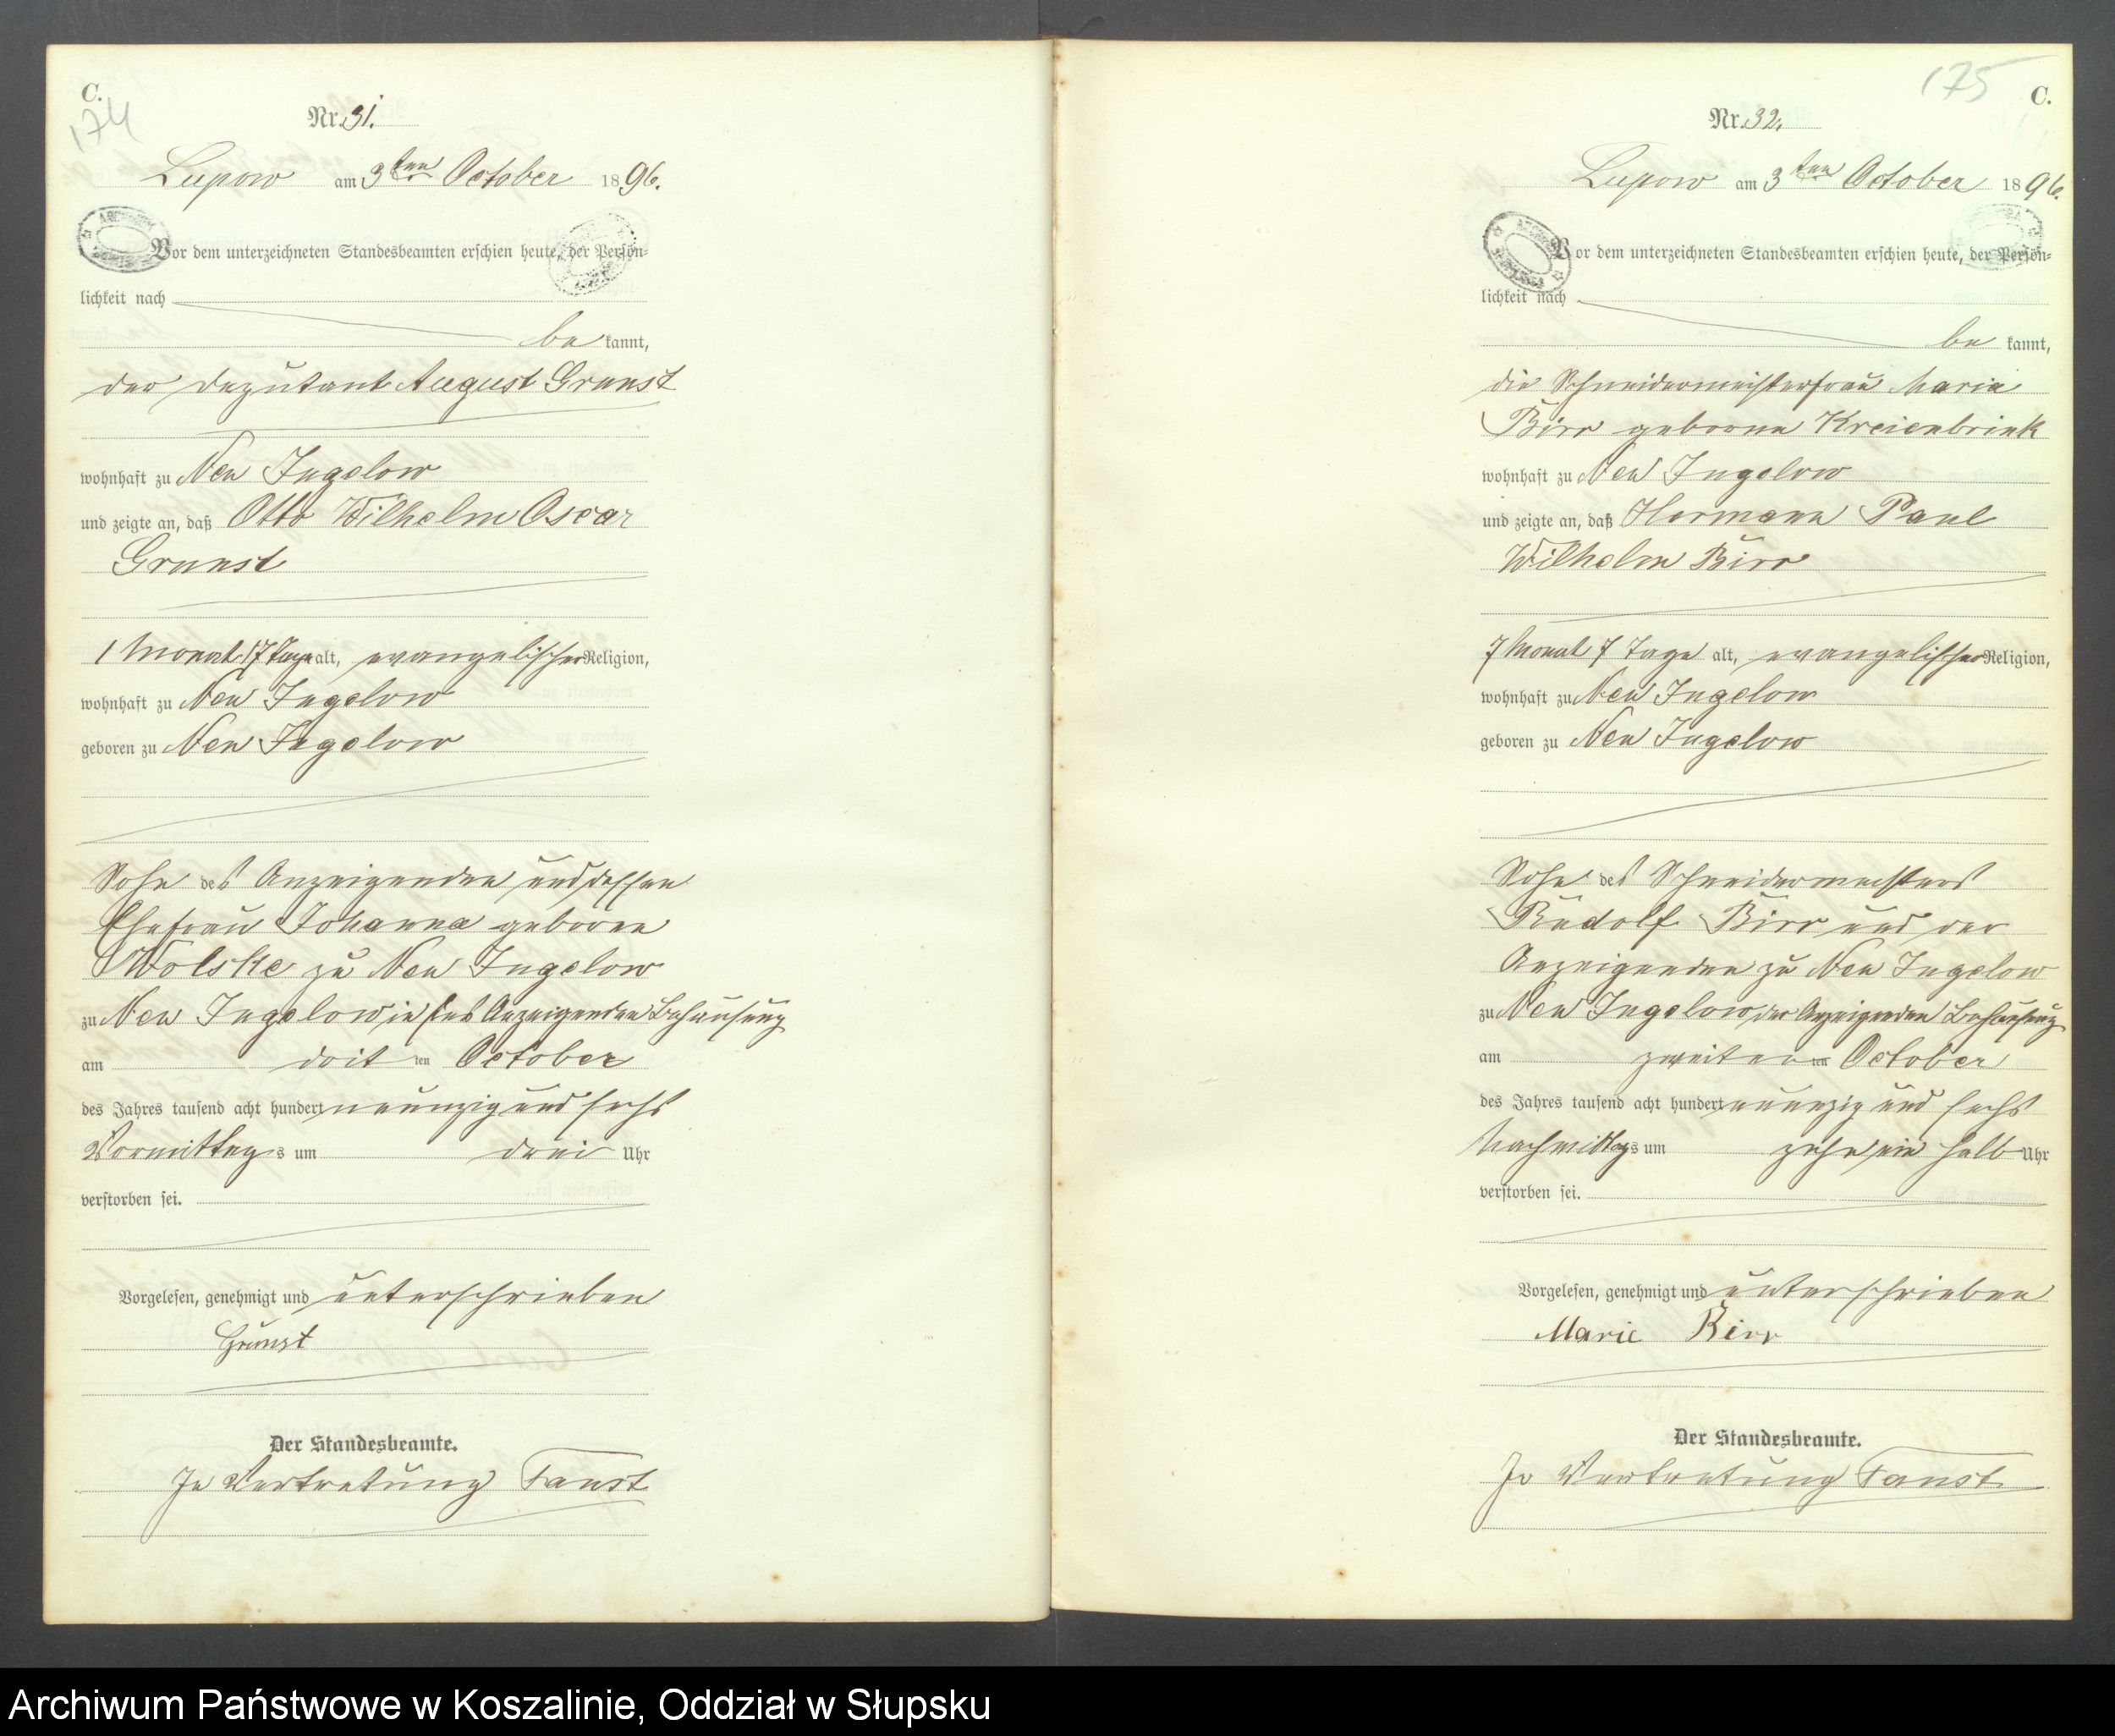 C.
174
Nr. 31.
Lupow am 3ten October 1896.
Vor dem unterzeichneten Standesbeamten erschien heute, der Persön-
lichkeit nach
be kannt,
der Deputant August Grunst
wohnhaft zu Neu Jugelow
und zeigte an, daß Otto Wilhelm Oscar
Grunst
1 Monat 17 Tage alt, evangelischer Religion,
wohnhaft zu Neu Jugelow
geboren zu Neu Jugelow
Sohn des Anzeigenden und dessen
Ehefrau Johanna geboren
Wolske zu Neu Jugelow
zu Neu Jugelow in des Anzeigenden Behausung
am dritten October
des Jahres tausend acht hundert neunzig und sechs
Vormittags um drei Uhr
verstorben sei.
Vorgelesen, genehmigt und unterschrieben
Grunst
Der Standesbeamte.
In Vertretung Faust
175
C.
Nr. 32.
Lupow am 3ten October 1896.
Vor dem unterzeichneten Standesbeamten erschien heute, der Persön-
lichkeit nach
be kannt,
die Schneidermeisterfrau Marie
Birr geborne Kreienbrink
wohnhaft zu Neu Jugelow
und zeigte an, daß Hermann Paul
Wilhelm Birr
7 Monat 7 Tage alt, evangelischer Religion,
wohnhaft zu Neu Jugelow
geboren zu Neu Jugelow
Sohn des Schneidermeisters
Rudolf Birr und der
Anzeigenden zu Neu Jugelow
zu Neu Jugelow der Anzeigenden Behausung
am zweiten October
des Jahres tausend acht hundert neunzig und sechs
Nachmittags um zehn ein halb Uhr
verstorben sei.
Vorgelesen, genehmigt und unterschrieben
Marie Birr
Der Standesbeamte.
In Vertretung Faust
Archiwum Państwowe w Koszalinie, Oddział w Słupsku